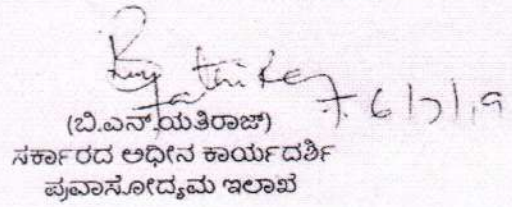 6/7/19
(ಬಿ.ಎನ್.ಯತಿರಾಜ್)
ಸರ್ಕಾರದ ಅಧೀನ ಕಾರ್ಯದರ್ಶಿ
ಪ್ರವಾಸೋದ್ಯಮ ಇಲಾಖೆ